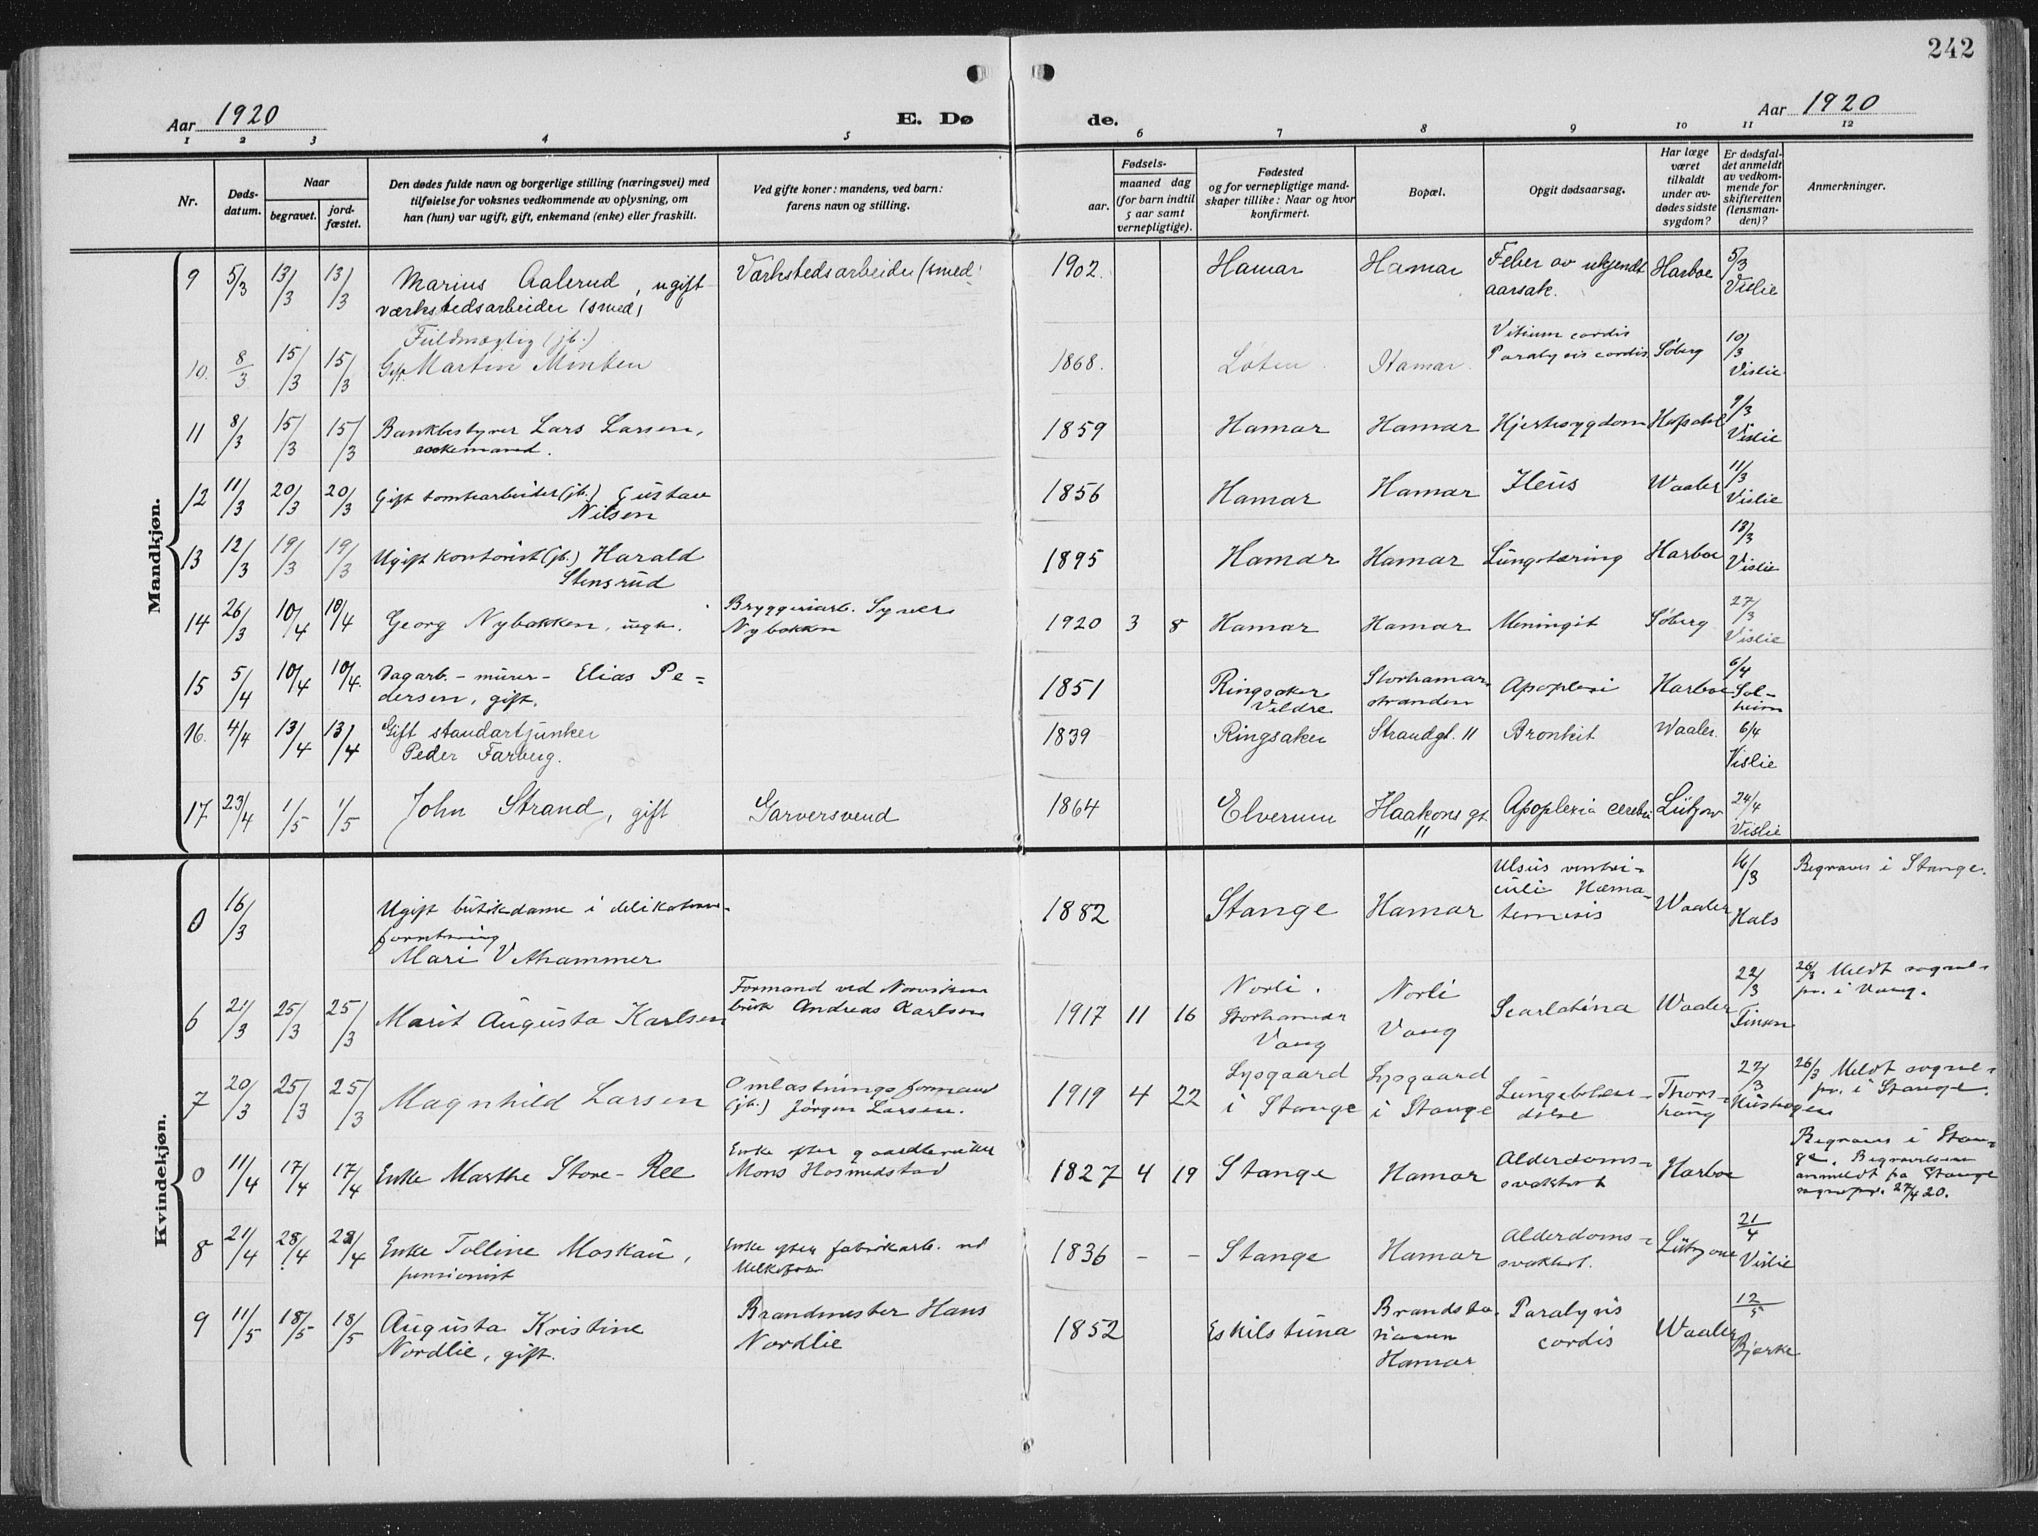 242
Aar 1920
E. Dø
de.
Aar 1920
1 2 3 4 5 6 7 8 9 10 11 12
Nr.
Døds-
datum.
Naar
begravet.
jord-
fæstet.
Den dødes fulde navn og borgerlige stilling (næringsvei) med
tilføielse for voksnes vedkommende av oplysning, om
han (hun) var ugift, gift, enkemand (enke) eller fraskilt.
Ved gifte koner: mandens, ved barn:
farens navn og stilling.
Fødsels-
aar.
maaned dag
(for barn indtil
5 aar samt
vernepligtige).
Fødested
og for vernepligtige mand-
skaper tillike: Naar og hvor
konfirmert.
Bopæl.
Opgit dødsaarsag.
Har læge
været
tilkaldt
under av-
dødes sidste
sygdom?
Er dødsfal-
det anmeldt
av vedkom-
mende for
skifteretten
(lensman-
den)?
Anmerkninger.
Mandkjøn.
9 5/3 13/3 13/3 Marius Aalerud, ugift
værkstedsarbeider (smed)
Værkstedsarbeider (smed)
1902. Hamar Hamar Feber av ukjendt
aarsak.
Harboe 5/3
Vislie
Fuldmægtig (jb.)
10. 8/3 15/3 15/3 Gift Martin Minken
1868. Løten Hamar. Vitium cordis
Paralysis cordis Søberg 10/3
Vislie
11 8/3 15/3 15/3 Bankbestyrer Lars Larsen,
enkemand.
1859 Hamar Hamar Hjertesygdom Hofsdal 9/3
Vislie
12 11/3 20/3 20/3 Gift tomtearbeider (jb.) Gustav
Nilsen
1856 Hamar Hamar Ileus Waaler 11/3
Vislie
13 12/3 19/3 19/3 Ugift kontorist (jb.) Harald
Stensrud
1895 Hamar Hamar Lungetæring Harboe 13/3
Vislie
14 26/3 10/4 10/4 Georg Nybakken, ugt.
Bryggeriarb. Syver
Nybakken
1920 3 8 Hamar Hamar Meningit Søberg 27/3
Vislie
15 5/4 10/4 10/4 Dagarb. - murer - Elias Pe-
dersen, gift.
1851 Ringsaker
Veldre
Storhamar-
stranden
Apoplexi Harboe 6/4
Sol-
heim
16. 4/4 13/4 13/4 Gift standartjunker
Peder Farberg.
1839 Ringsaker Strandgt. 11 Bronkit Waaler. 6/4
Vislie
17 23/4 1/5 1/5 John Strand, gift Garversvend
1864 Elverum Haakons gt.
11
Apoplexia cerebri Lützow 24/4
Vislie
Kvindekjøn.
0 16/3 Ugift butikdame i delikatesse-
forretning
Mari Vethammer
1882 Stange Hamar Ulsus ventri-
culi Hæma-
temesis
Waaler 16/3
Hals
Begraves i Stange.
6 21/3 25/3 25/3 Marit Augusta Karlsen
Formand ved
bruk Andreas Karlsen
1917 11 16 Norli.
Storhamar
Vang
Norli
Vang
Scarlatina Waaler 22/3
Finsen
26/3 Meldt sogne-
pr. i Vang.
7 20/3 25/3 25/3 Magnhild Larsen
Omlastningsformand
(jb.) Jørgen Larsen.
1919 4 22 Lysgaard
i Stange
Lysgaard
i Stange
Lungebetæn-
delse
Thors-
haug
22/3
26/3 Meldt sogne-
pr. i Stange.
0 11/4 17/4 17/4 Enke Marthe Store-Ree
Enke efter gaardbruker
Mons Hosmedstad
1827 4 19 Stange Hamar Alderdoms-
svakhet
Harboe
Begraves i Stan-
ge. Begravelsen
anmeldt fra Stange
sognepr. 27/4 20.
8 21/4 28/4 28/4 Enke Tolline Moskau,
pensionist
Enke efter fabrikarb. ved
Melkefab.
1836 - - Stange Hamar Alderdoms-
svakhet.
Lützow 21/4
Vislie
9 11/5 18/5 18/5 Augusta Kristine
Nordlie, gift.
Brandmester Hans
Nordlie
1852 Eskilstuna Brandsta-
sionen
Hamar
Paralysis
cordis
Waaler 12/5
Bjerke